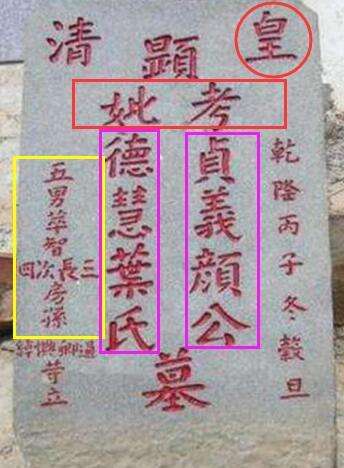 皇清
顯
乾隆丙子冬穀旦
考貞義顏公
妣德慧葉氏
墓
五男萃智
三長次四
房孫
等立